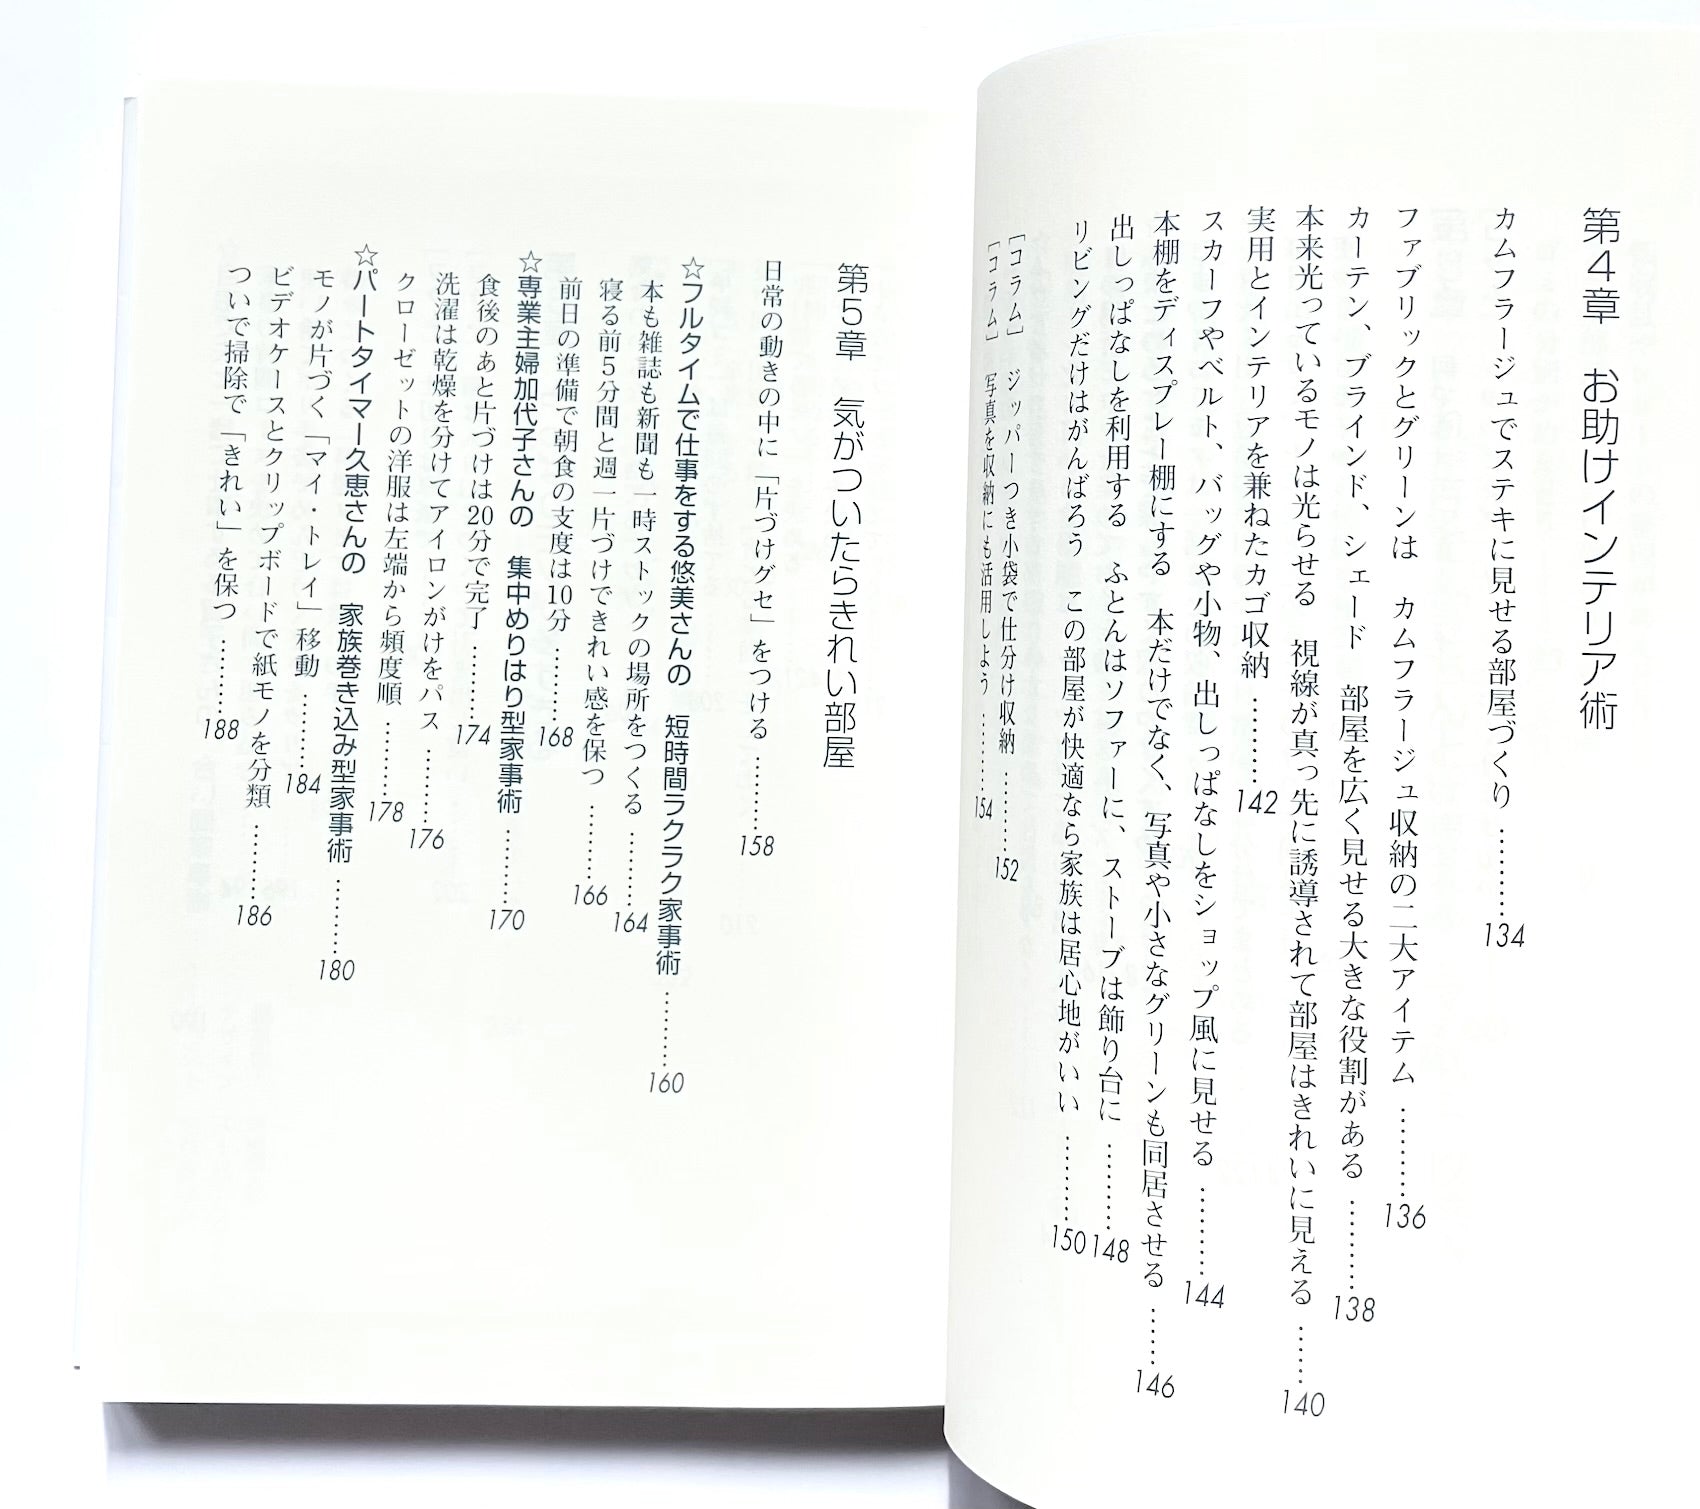 第4章　お助けインテリア術
カムフラージュでステキに見せる部屋づくり ………134
ファブリックとグリーンは　カムフラージュ収納の二大アイテム ………136
カーテン、ブラインド、シェード　部屋を広く見せる大きな役割がある ………138
本来光っているモノは光らせる　視線が真っ先に誘導されて部屋はきれいに見える ……140
実用とインテリアを兼ねたカゴ収納 ………142
スカーフやベルト、バッグや小物、出しっぱなしをショップ風に見せる ………144
本棚をディスプレー棚にする　本だけでなく、写真や小さなグリーンも同居させる ……146
出しっぱなしを利用する　ふとんはソファーに、ストーブは飾り台に ………148
リビングだけはがんばろう　この部屋が快適なら家族は居心地がいい ………150
［コラム］　ジッパーつき小袋で仕分け収納 ………152
［コラム］　写真を収納にも活用しよう ………154
第5章　気がついたらきれい部屋
日常の動きの中に「片づけグセ」をつける ………158
☆フルタイムで仕事をする悠美さんの　短時間ラクラク家事術 ………160
本も雑誌も新聞も一時ストックの場所をつくる ………164
寝る前5分間と週一片づけできれい感を保つ ………166
前日の準備で朝食の支度は10分 ………168
☆専業主婦加代子さんの　集中めりはり型家事術 ………170
食後のあと片づけは20分で完了 ………174
洗濯は乾燥を分けてアイロンがけをパス ………176
クローゼットの洋服は左端から頻度順 ………178
☆パートタイマー久恵さんの　家族巻き込み型家事術 ………180
モノが片づく「マイ・トレイ」移動 ………184
ビデオケースとクリップボードで紙モノを分類 ………186
ついで掃除で「きれい」を保つ ………188